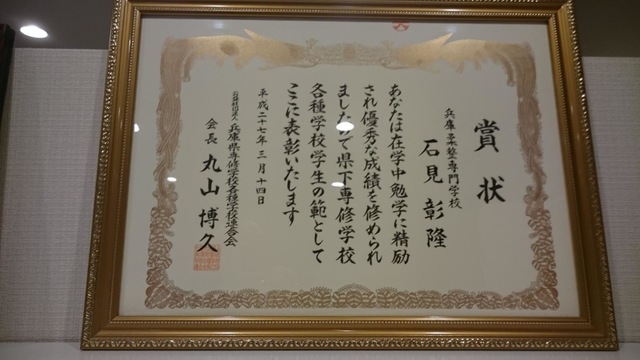 賞状
兵庫柔整専門学校
石見 彰隆
あなたは在学中勉学に精励
され優秀な成績を修められ
ましたので県下専修学校
各種学校学生の範として
ここに表彰いたします
平成二十七年三月十四日
公益社団法人 兵庫県専修学校各種学校連合会
会長 丸山 博久